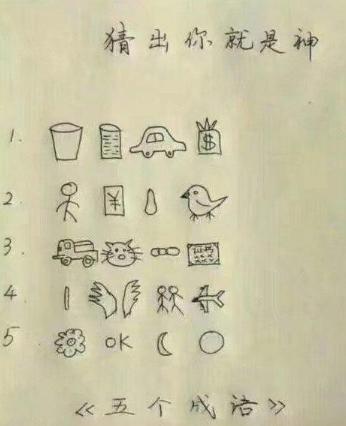 猜出你就是神
1. $
2. ¥
3.
4.
5 OK
《五个成语》